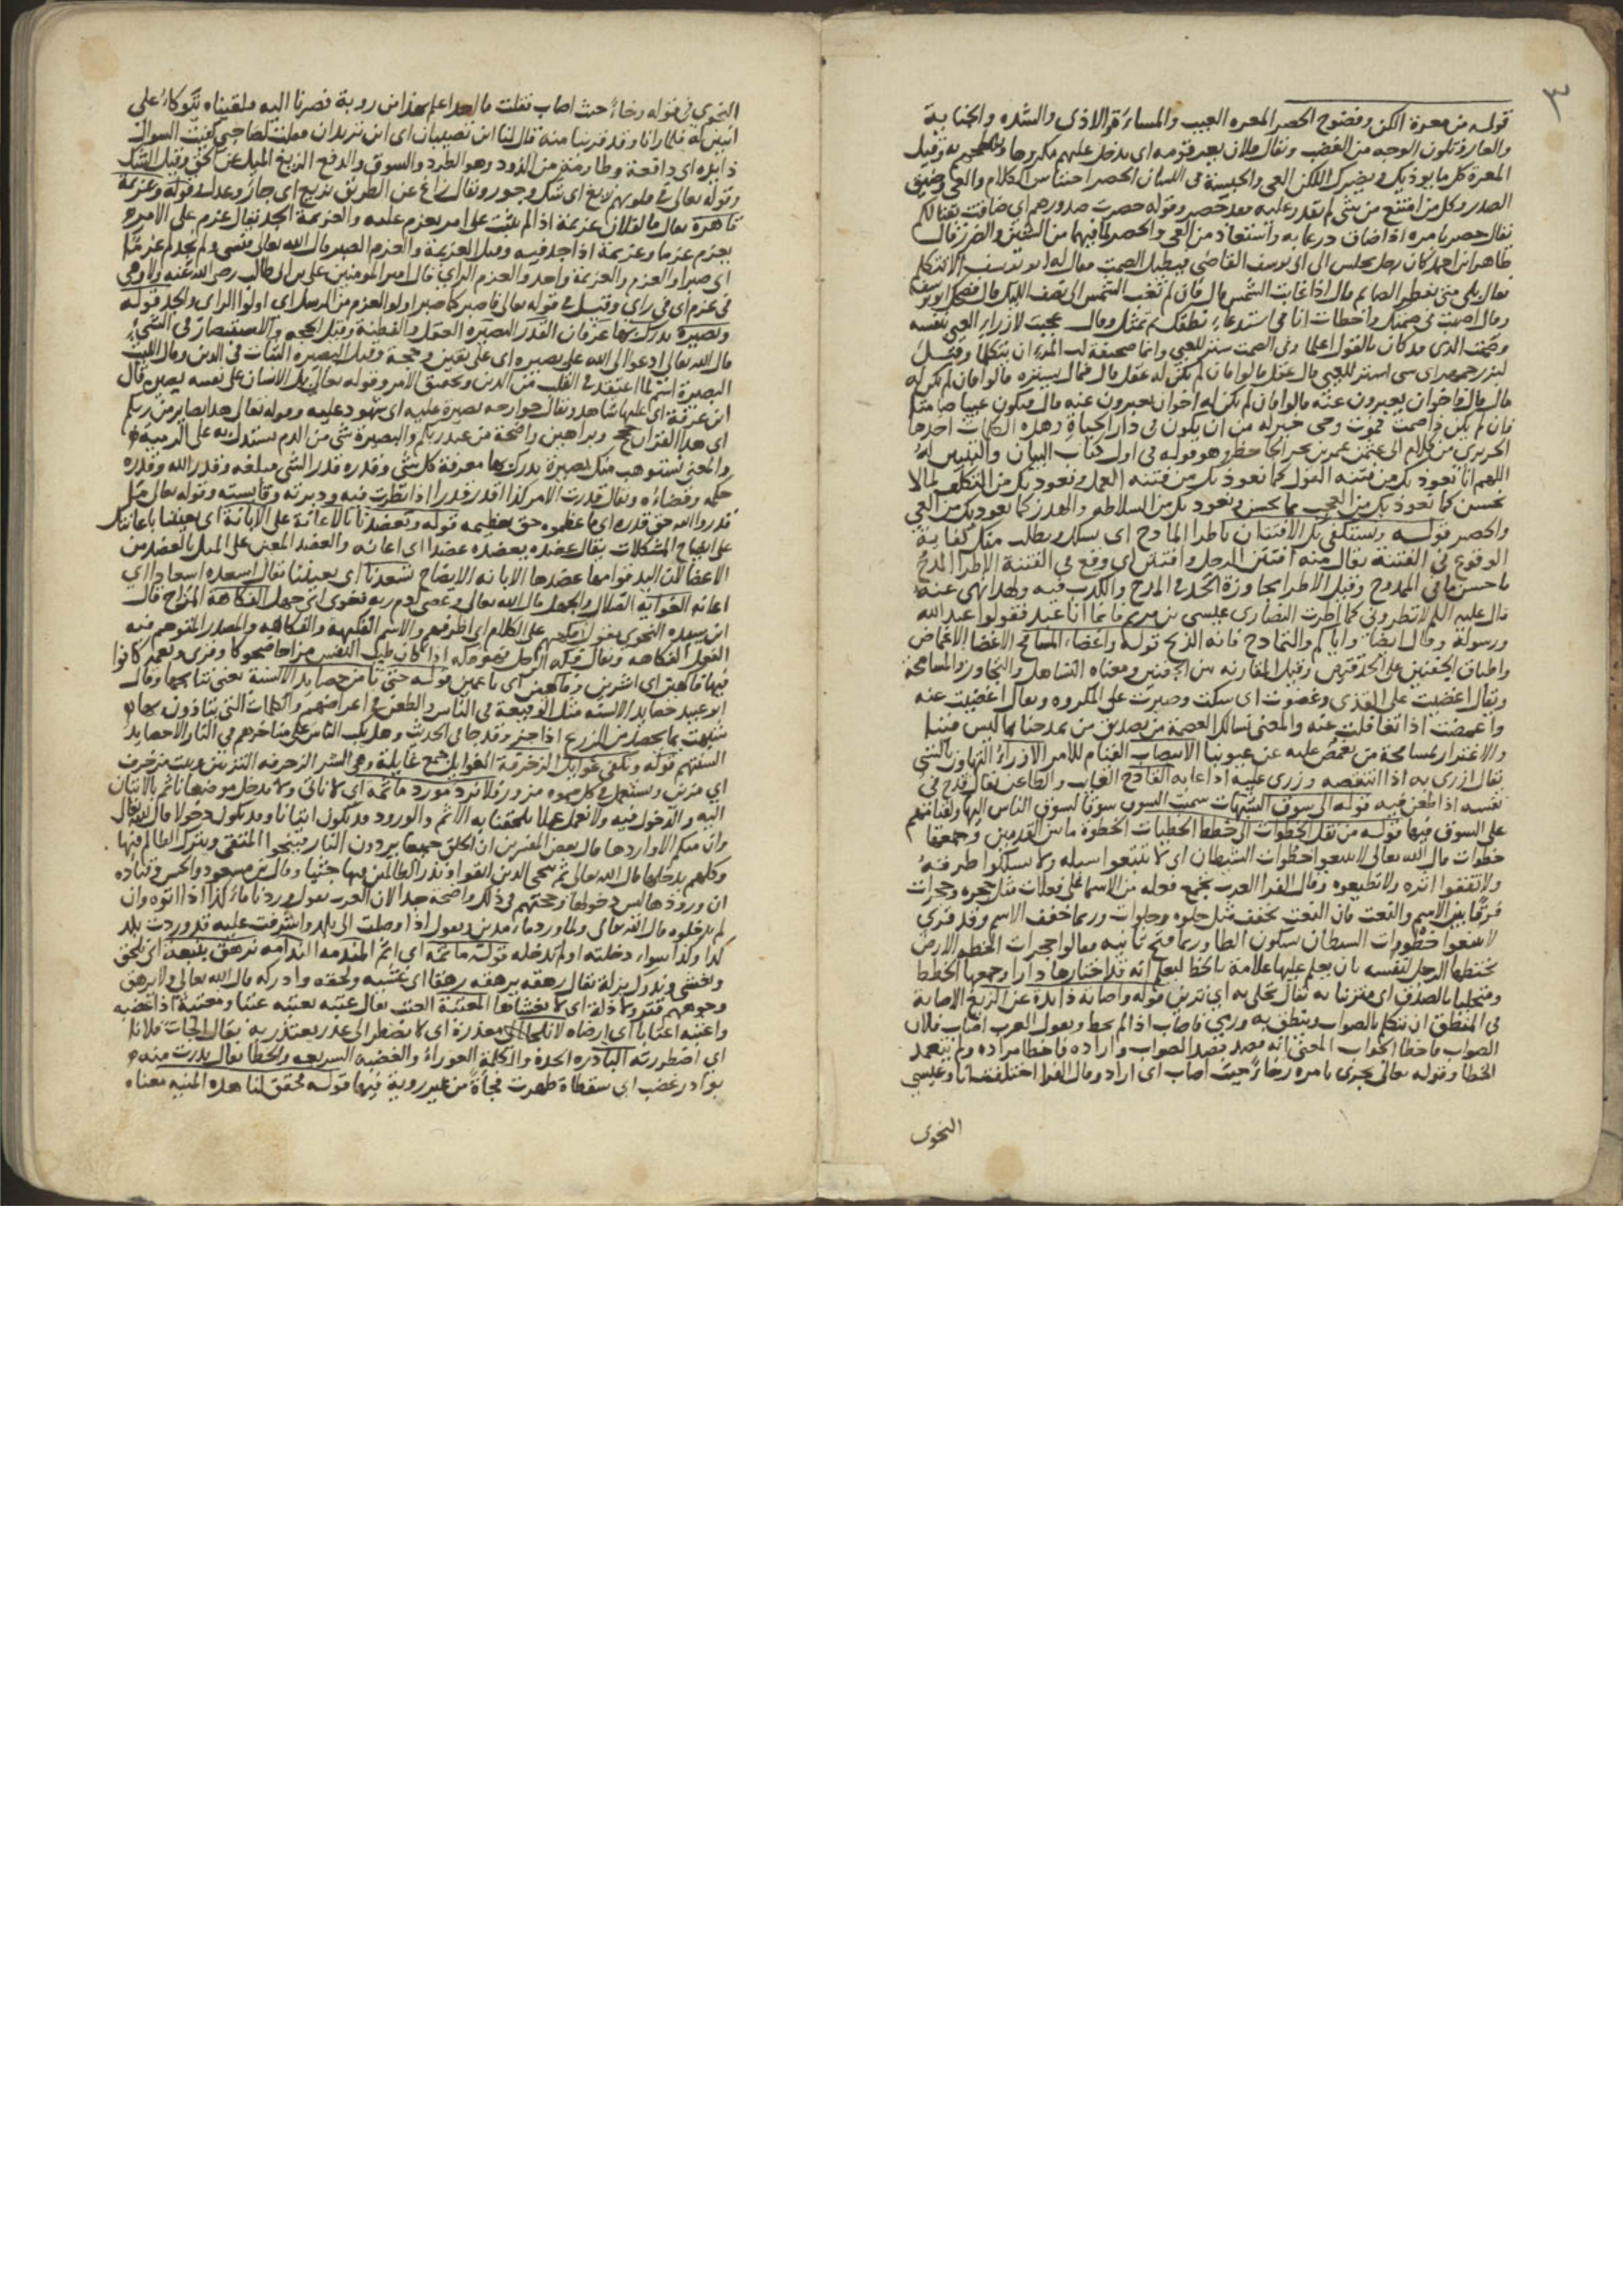 ٣
قوله من معرة اللكن وفضوح الحصر المعره العيب والمساءة والاذى والشده والجناية
والعار وتلون الوجه من الغضب ويقال فلان يعر قومه اى يدخل عليهم مكروها وقيل
المعرة كل ما يوذيك ويضرك اللكن العي والحبسة في اللسان الحصر احتباس الكلام والعي وضيق
الصدر وكل من امتنع من شي لم يقدر عليه فقد حصر وقوله حصرت صدورهم اي ضاقت
يقال حصر بامره اذا ضاق ذرعا به واستعاذ من العي والحصر لما فيهما من الشين والضرر قال
طاهر ابن احمد كان رجل يجلس الى ابي يوسف القاضي فيطيل الصمت فقال له ابو يوسف الا تتكلم
فقال بلى متى يفطر الصايم قال اذا غابت الشمس قال فان لم تغب الشمس الى نصف الليل قال فضحك ابو يوسف
وقال اصبت في صمتك واخطات انا في استدعاء نطقك ثم تمثل وقال عجبت لازراء العيي بنفسه
وصمت الذي قد كان بالقول اعلما وفي الصمت ستر للعيي وانما صحيفة لب المرء ان يتكلما وقيل
لبزرجمهر اي شي استر للعيي قال عقل قالوا فان لم يكن له عقل قال فمال يستره قالوا فان لم يكن له
مال قال فاخوان يعبرون عنه قالوا فان لم يكن له اخوان يعبرون عنه قال فيكون عييا صامتا
فان لم يكن ذا صمت فموت وحي خير له من ان يكون في دار الحياة وهذه الكلمات اخذها
الحريري من كلام ابي عثمن عمر بن بحر الجاحظ وهو قوله في اول كتاب البيان والتبيين له
اللهم انا نعوذ بك من فتنة القول كما نعوذ بك من فتنه العمل ونعوذ بك من التكلف لما لا
نحسن كما نعوذ بك من العجب بما نحسن ونعوذ بك من السلاطه والهدر كما نعوذ بك من العي
والحصر قوله ونستكفي بك الافتتان باطرا المادح اى نسالك ونطلب منك كفاية
الوقوع في الفتنة يقال منه افتتن الرجل وافتتن اي وقع في الفتنة الاطرا المدح
باحسن ما في الممدوح وقيل الاطرا مجاوزة الحد في المدح والكذب فيه ولهذا نهى عنه
قال عليه السلم لا تطروني كما اطرت النصارى عيسى بن مريم فانما انا عبد فقولوا عبد الله
ورسوله وقال ايضا واياكم والتمادح فانه الذبح قوله واغضاء المسامح الاغضا الاغماض
واطباق الجفنين على الحدقتين وقيل المقاربه بين الجفنين ومعناه التساهل والتجاوز والمسامحة
ويقال اغضيت على القذى وغضوت اى سكت وصبرت على المكروه ويقال اغضيت عنه
واغمضت اذا تغافلت عنه والمعنى نسالك العصمة من تصديق من يمدحنا بما ليس فينا
والاغترار بمسامحة من يغمض عليه عن عيوبنا الانتصاب القيام للامر الازراء التهاون بالشي
يقال ازرى به اذا انتقصه وزرى عليه اذا عابه القادح العايب والطاعن يقال قدح في
نفسه اذا طعن فيه قوله الى سوق الشبهات سميت السوق سوقا لسوق الناس اليها ولقيامهم
على السوق فيها قوله من نقل الخطوات الى خطط الخطيات الخطوة ما بين القدمين وجمعها
خطوات قال الله تعالى لا تتبعوا خطوات الشيطان اى لا تتبعوا سبله ولا تسلكوا طرقه
ولا تقفوا اثره ولا تطيعوه وقال الفرا العرب تجمع فعله من الاسما على فعلات مثل حجره وحجرات
فرقا بين الاسم والنعت فان النعت يخفف مثل حلوه وحلوات وربما خفف الاسم وقد قرى
لا تتبعوا خطوات الشيطان بسكون الطا وربما فتح ثانيه فقالوا حجرات الخطه الارض
يختطها الرجل لنفسه بان يعلم عليها علامة بالخط ليعلم انه قد اختارها دارا وجمعها الخطط
ومتحليا بالصدق اي متزينا به يقال تحلى به اي تزين قوله واصابة ذايدة عن الزيغ الاصابة
في المنطق ان يتكلم بالصواب وينطق به ورمى فاصاب اذا لم يخط ويقول العرب اصاب فلان
الصواب فاخطا الجواب المعنى انه قصد قصد الصواب واراده فاخطا مراده ولم يتعمد
الخطا وقوله تعالى تجرى بامره رخاءً حيث اصاب اى اراد وقال الفرا اختلفت انا وعيسى
النحوى
النحوي في قوله رخاءً حيث اصاب فقلت ما احد اعلم بهذا من روبة فصرنا اليه فلقيناه يتوكاء على
ابنين له فلما رانا وقد قربنا منه قال لنا اين تصيبان اى اين تريدان فقلت لصاحبي كفيت السوال
ذايده اي دافعة وطاردة من الذود وهو الطرد والسوق والدفع الزيغ الميل عن الحق وقيل الشك
وقوله تعالى في قلوبهم زيغ اى شك وجور ويقال زاغ عن الطريق يزيغ اى جار وعدل قوله وعزيمة
قاهرة يقال ما لفلان عزيمة اذا لم يثبت على امر يعزم عليه والعزيمة الجد يقال عزم على الامر
يعزم عزما وعزيمة اذا جد فيه وقيل العزيمة والعزم الصبر قال الله تعالى فنسى ولم نجد له عزما
اى صبرا والعزم والعزيمة واحد والعزم الراي قال امير المومنين على بن ابى طالب رضي الله عنه ولا وهي
في عزم اى في راي وقيل في قوله تعالى فاصبر كما صبر اولوا العزم من الرسل اى اولوا الراى والجد قوله
وبصيرة ندرك بها عرفان القدر البصيره العقل والفطنة وقيل الحجه والاستبصار في الشيء
قال الله تعالى ادعوا الى الله على بصيره اى على يقين وحجة وقيل البصيره الثبات في الدين وقال الليث
البصيرة اسم لما اعتقد في القلب من الدين وتحقيق الامر وقوله تعالى بل الانسان على نفسه بصيره قال
ابن عرفة اي عليها شاهد ويقال جوارحه بصيرة عليه اى شهود عليه وقوله تعالى هذا بصاير من ربكم
اى هذا القران حجج وبراهين واضحة من عند ربكم والبصيرة شي من الدم يستدل به على الرمية
والمعنى نستوهب منك بصيرة ندرك بها معرفة كل شي وقدره قدر الشي مبلغه وقدر الله وقدره
حكمه وقضاءه ويقال قدرت الامر كذا اقدر قدرا اذا نظرت فيه ودبرته وقايسته وقوله تعالى
قدروا الله حق قدره اى ما عظموه حق تعظيمه قوله وتعضدنا بالاعانة على الابانة اى يعيننا باعانتك
على ايضاح المشكلات يقال عضده يعضده عضدا اى اعانه والعضد المعين على المثل بالعضد من
الاعضا لان اليد قوامها عضدها الابانه الايضاح تسعدنا اى يعيننا يقال اسعده اسعادا اي
اعانه الغواية الضلال والجهل قال الله تعالى وعصى ادم ربه فغوى اى جهل الفكاهة المزاح قال
ابن سيده النحوي يقول فكههم على الكلام اى اطرفهم والاسم الفكيهة والفكاهه والمصدر المتوهم فيه
الفعل الفكاهه ويقال فكه الرجل فهو فكه اذا كان طيب النفس مزاحا ضحوكا وقرى ونعمة كانوا
فيها فاكهين اى اشرين وفاكهين اى ناعمين قوله حتى نامن حصايد الالسنة يعنى نتايجها وقال
ابو عبيد حصايد الالسنه مثل الوقيعة في الناس والطعن في اعراضهم والكلمات التي يتاذون بها
شبهت بما يحصد من الزرع اذا جز وقد جا في الحديث وهل يكب الناس على مناخرهم في النار الا حصايد
السنتهم قوله ونكفى غوايل الزخرفة الغوايل جمع غايلة وهي الشر الزخرفه التزيين وبيت مزخرف
اي مزين ويستعمل في كل مموه مزور فلا نرد مورد ماثمة اي لا ناتى ولا ندخل موضعا ناثم بالاتيان
اليه والدخول فيه ولا نعمل عملا يلحقنا به الاثم والورود قد يكون اتيانا وقد يكون دخولا قال الله تعالى
وان منكم الا واردها قال بعض المفسرين ان الخلق جميعا يردون النار فينجوا المتقى ويترك الظالم فيها
وكلهم يدخلها قال الله تعالى ثم ننجى الذين اتقوا ونذر الظالمين فيها جثيا وقال بن مسعود والحسن وقتاده
ان ورودها ليس دخولها وحجتهم في ذلك واضحة جدا لان العرب تقول وردنا ماء كذا اذا اتوه وان
لم يدخلوه قال الله تعالى ولما ورد ماء مدين ويقول اذا وصلت الى بلد واشرفت عليه قد وردت بلد
كذا وكذا سواء دخلته او لم تدخله قوله ماثمة اى اثم المندمه الندامة نرهق بتبعة اى نلحق
ونغشى وندرك بزلة يقال رهقه يرهقه رهقا اى غشيه ولحقه وادركه قال الله تعالى ولا يرهق
وجوههم قتر ولا ذلة اى لا يغشاها المعتبة العتب يقال عتبه يعتبه عتبا ومعتبة اذا غضبه
واعتبه اعتابا اى ارضاه لا نلجا الى معذرة اى لا نضطر الى عذر يعتذر به يقال الجات فلانا
اي اضطررته البادره الحدة والكلمة العوراء والغضبه السريعه والخطا يقال بدرت منه
بوادر غضب اى سقطاة ظهرت فجأةً من غير روية فيها قوله فحقق لنا هذه المنيه معناه